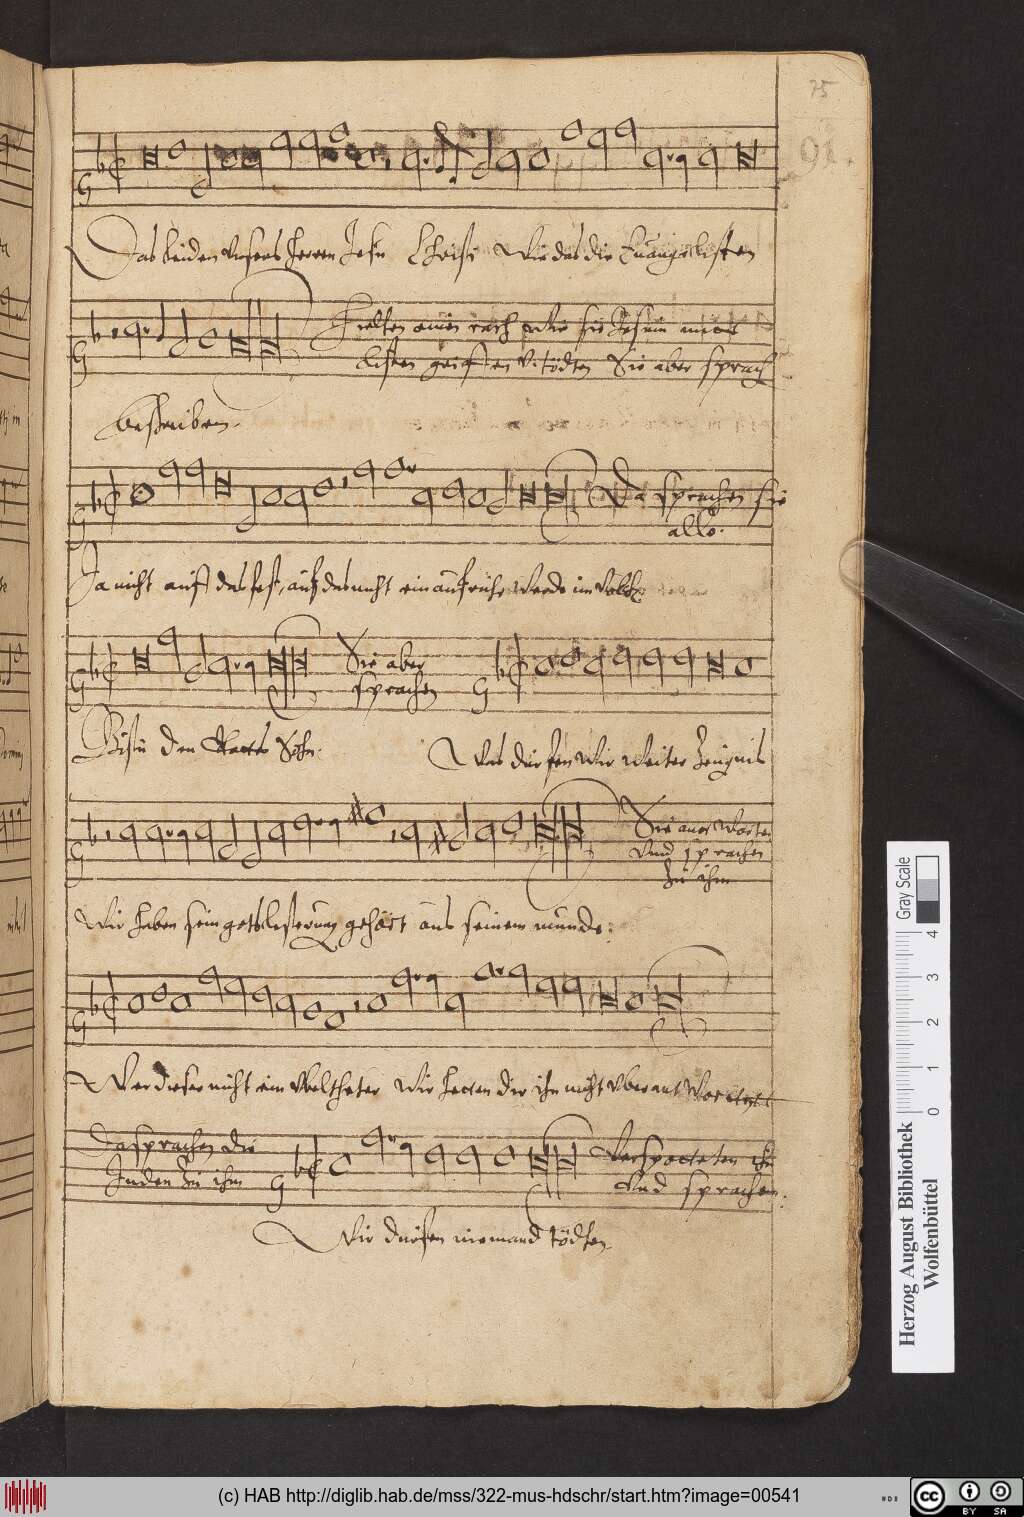 75
91.
Das leiden unsers herren Jesu Christi Wie das die Euangelisten
Hielten einen rath wie sie Jesum mit
listen griffen v. tödten Sie aber sprach
beschreiben.
Da sprachen sie
alle.
Ja nicht auff das fest, auff das nicht ein aufruhr werde im Volck
Sie aber
sprachen
Bistu den Gottes Sohn.
Was dürfen wir weiter Zeugnis
Und sprachen
Zu ihm
Wir haben sein gotslesterung gehört aus seinem munde.
Wer dieser nicht ein Weltheter Wir hetten dir ihn nicht uberantwortett
Da sprachen die
Juden Zu ihm
Verspotteten ihn
Und sprachen.
Wir dürfen niemand tödten.
Gray Scale
0 1 2 3 4
Herzog August Bibliothek
Wolfenbüttel
(c) HAB http://diglib.hab.de/mss/322-mus-hdschr/start.htm?image=00541
cc BY SA